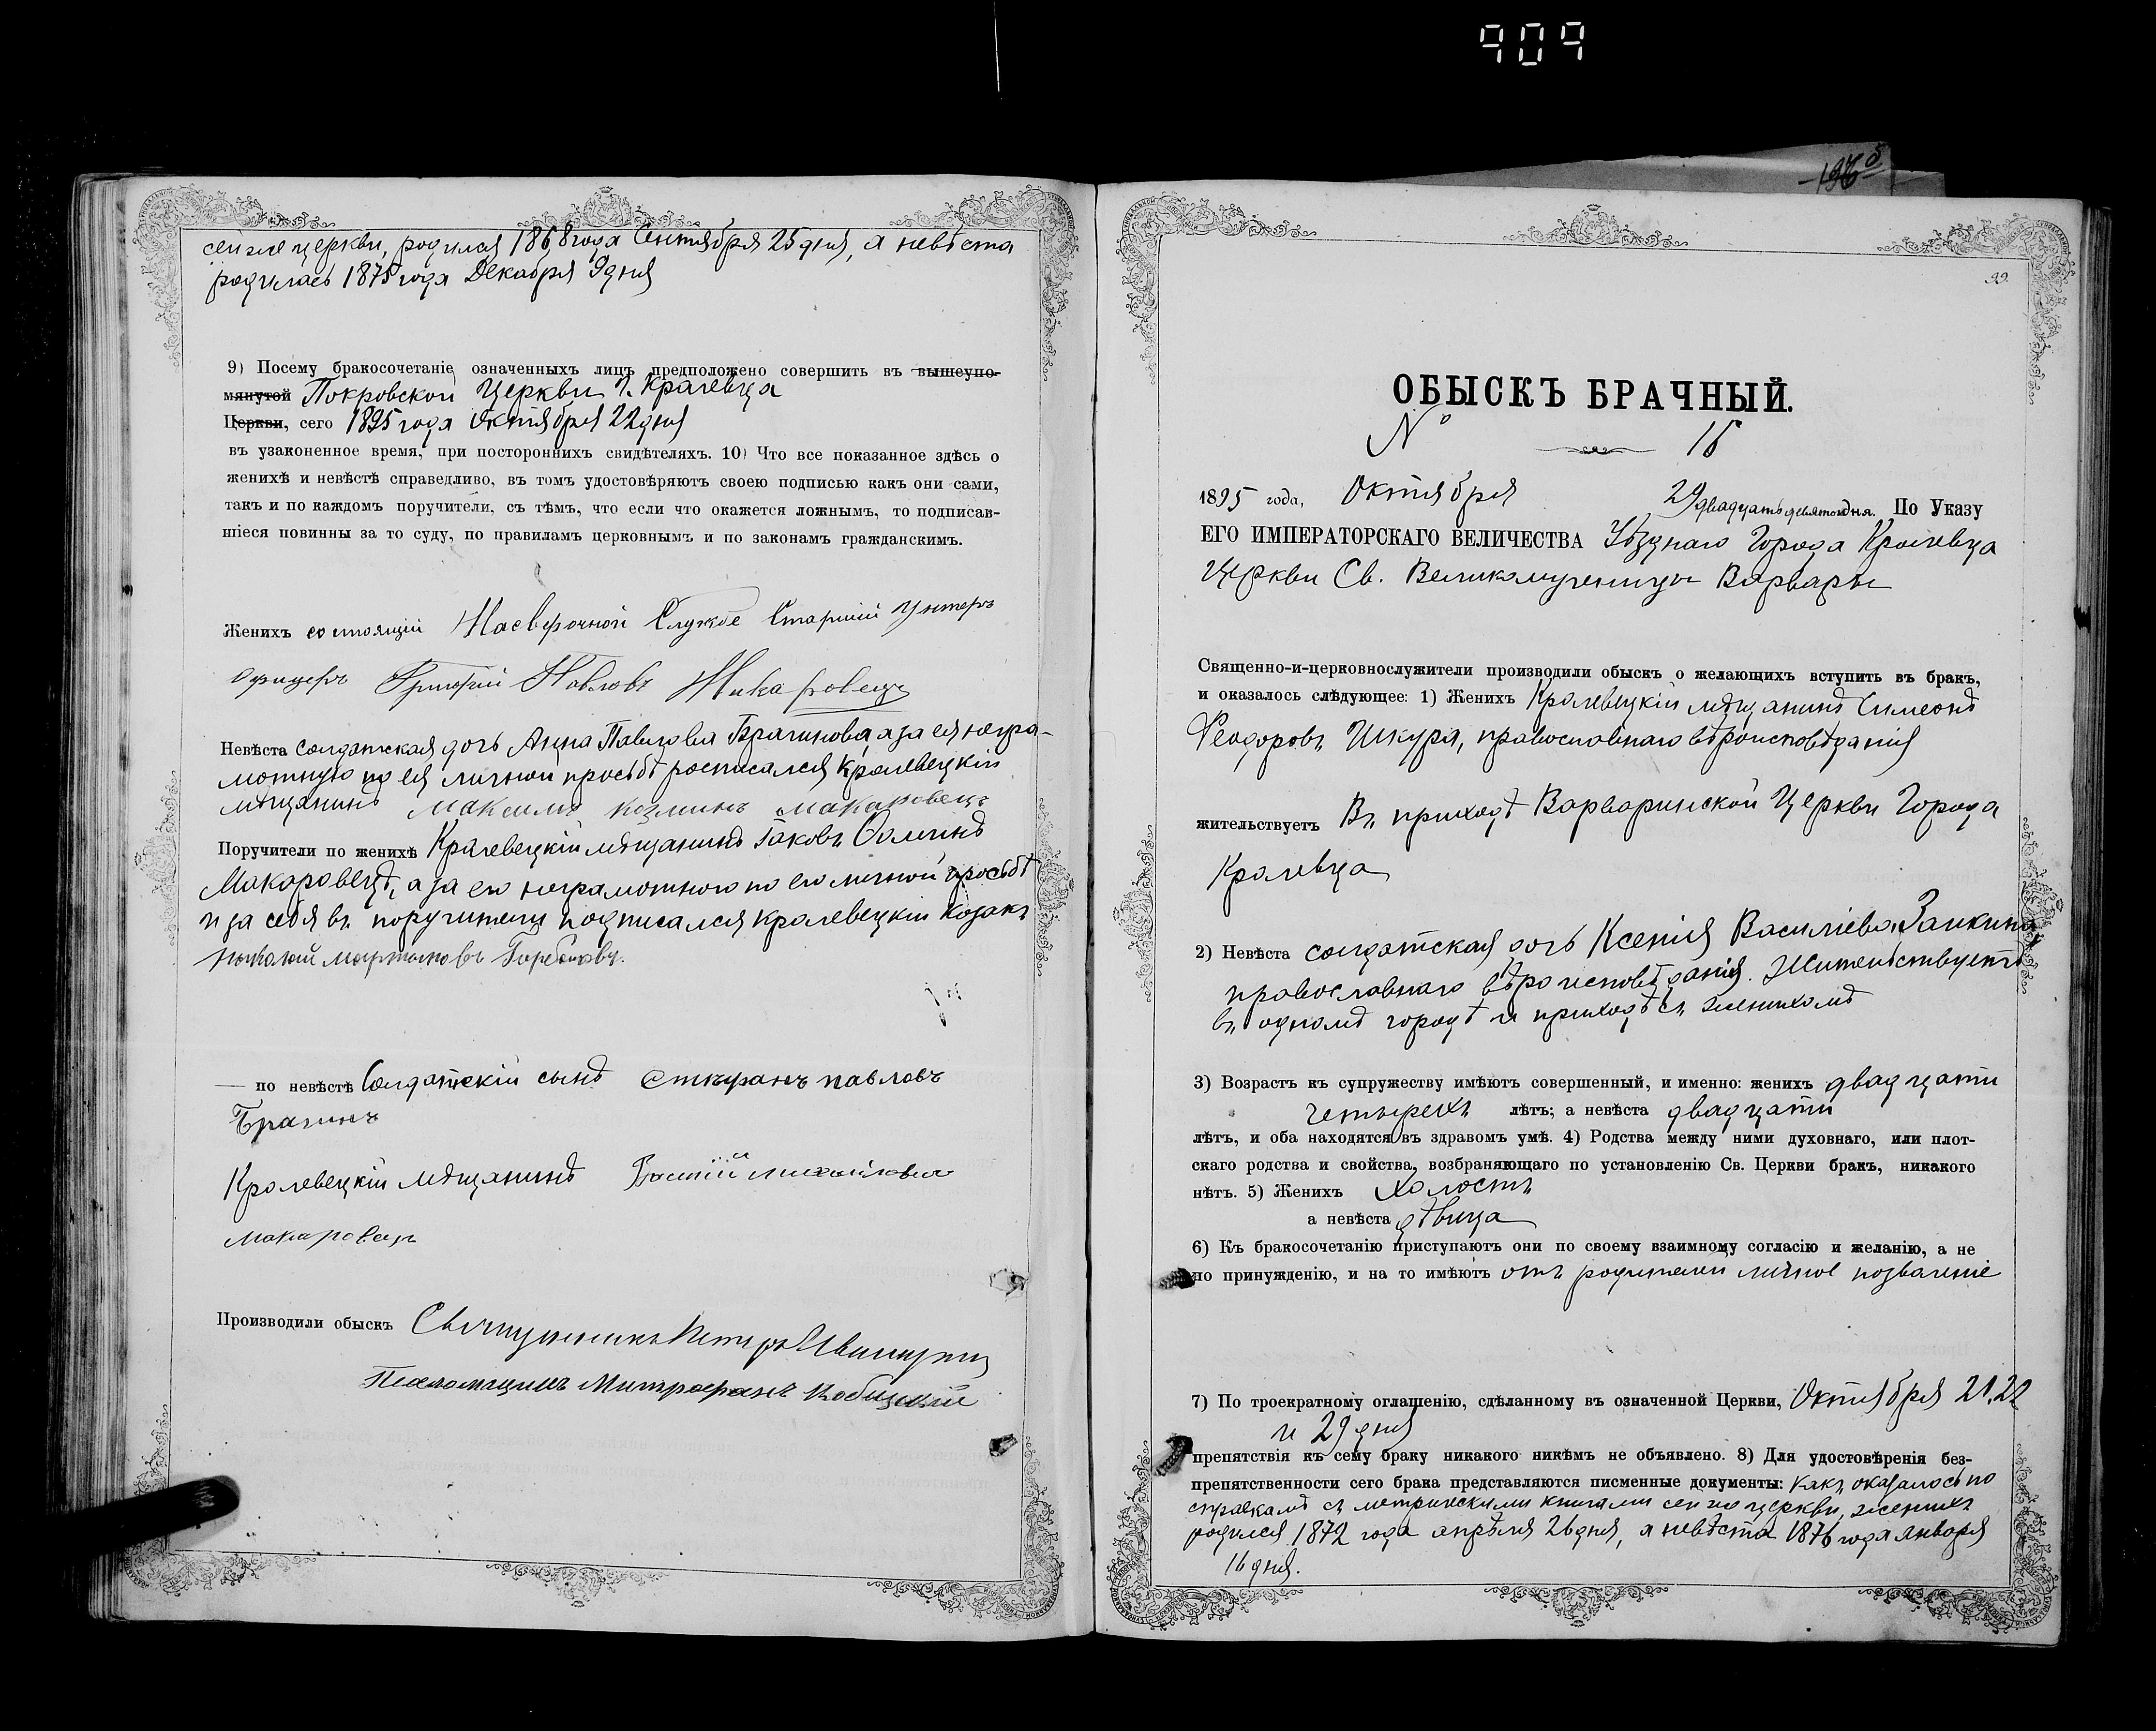 909
196 б
сей же церкви, родился 1868 года Сентября 25 дня, а невѣста
родилась 1875 года Декабря 9 дня
9) Посему бракосочетаніе означенныхъ лицъ предположено совершить въ вышеупо-
мянутой Покровской Церкви г. Кролевца
Церкви, сего 1895 года Октября 22 дня
въ узаконенное время, при постороннихъ свидѣтеляхъ. 10) Что все показанное здѣсь о
женихѣ и невѣстѣ справедливо, въ томъ удостовѣряютъ своею подписью какъ они сами,
такъ и по каждомъ поручители, съ тѣмъ, что если что окажется ложнымъ, то подписав-
шіеся повинны за то суду, по правиламъ церковнымъ и по законамъ гражданскимъ.
Женихъ состоящій Службе Старшій Унтеръ
офицеръ Григорій Павловъ
Невѣста солдатская дочь Анна Павлова Брагинова, а за ея негра-
мотную по ея личной просьбѣ росписался Кролевецкій
мѣщанинъ Максимъ Козминъ Макаровецъ
Поручители по женихѣ Кролевецкій мѣщанинъ Іаковъ Ѳоминъ
Макаровецъ, а за его неграмотного по его личной просьбѣ
и за себя въ поручители подписался Кролевецкій козакъ
Мартыновъ
— по невѣстѣ Солдатскій сынъ Стефанъ Павловъ
Брагинъ
Кролевецкій мѣщанинъ
Макаровецъ
Производили обыскъ Священникъ Петръ
Псаломщикъ Митрофанъ
99.
ОБЫСКЪ БРАЧНЫЙ.
№ 16
1895 года, Октября 29 двадцать девятого дня. По Указу
ЕГО ИМПЕРАТОРСКАГО ВЕЛИЧЕСТВА Уѣзднаго Города Кролевца
Церкви Св. Великомученицы Варвары
Священно-и-церковнослужители производили обыскъ о желающихъ вступить въ бракъ,
и оказалось слѣдующее: 1) Женихъ Кролевецкій мѣщанинъ Симеонъ
Ѳеодоровъ Шкура, православнаго вѣроисповѣданія
жительствуетъ Въ приходѣ Варваринской Церкви Города
Кролевца
2) Невѣста солдатская дочь Ксенія Василіева Заикина
православнаго вѣроисповѣданія. Жительствуетъ
въ одномъ городѣ и приходѣ съ женихомъ
3) Возрастъ къ супружеству имѣютъ совершенный, и именно: женихъ двадцати
четырехъ лѣтъ; а невѣста двадцати
лѣтъ, и оба находятся въ здравомъ умѣ. 4) Родства между ними духовнаго, или плот-
скаго родства и свойства, возбраняющаго по установленію Св. Церкви бракъ, никакого
нѣтъ. 5) Женихъ холостъ
а невѣста дѣвица
6) Къ бракосочетанію приступаютъ они по своему взаимному согласію и желанію, а не
по принужденію, и на то имѣютъ отъ родителей личное позваленіе
7) По троекратному оглашенію, сдѣланному въ означенной Церкви, Октября 21, 22
и 29 дня
препятствія къ сему браку никакого никѣмъ не объявлено. 8) Для удостовѣренія без-
препятственности сего брака представляются писменные документы: какъ оказалось по
справкамъ съ метрическими книгами сей же церкви, женихъ
родился 1872 года апрѣля 26 дня, а невѣста 1876 года января
16 дня.